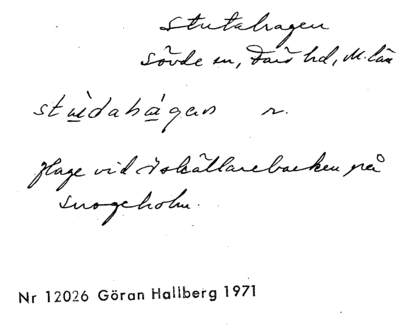 Stutahagen
Sövde sn, Färs hd, M. län
stùdahágen n.
Hage vid Iskällarebacken på
Snogeholm.
Nr 12026 Göran Hallberg 1971